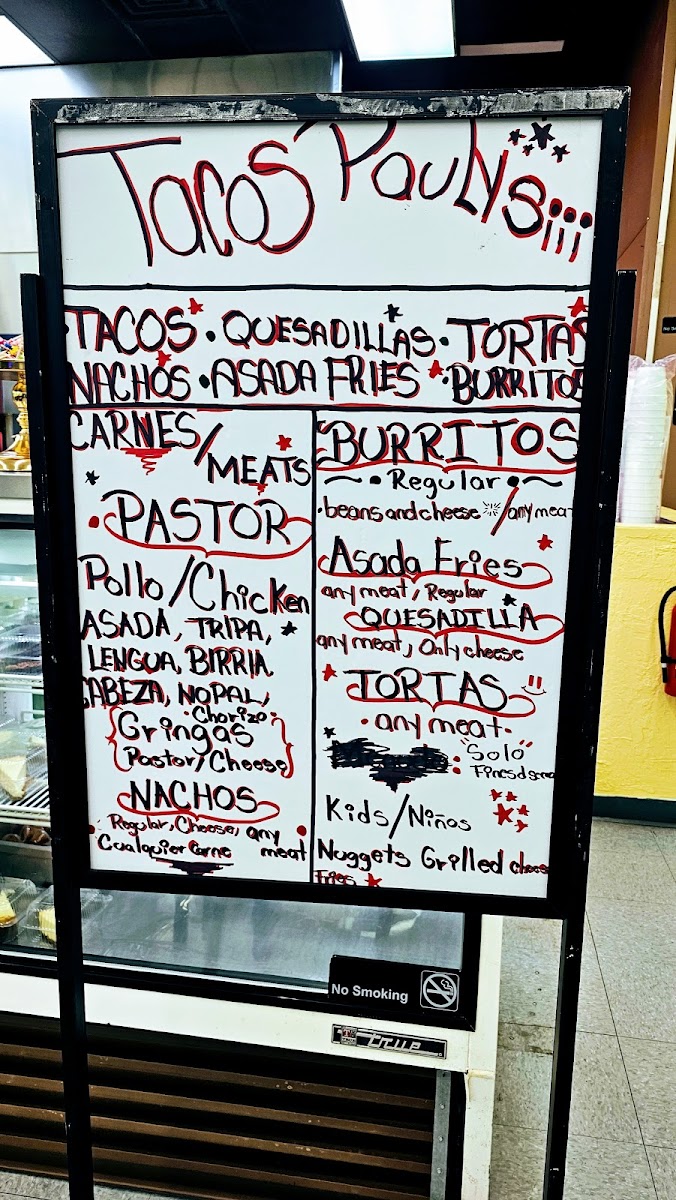 Tacos Paulys¡¡¡
TACOS • QUESADILLAS • TORTAS
NACHOS • ASADA FRIES BURRITOS
CARNES/
MEATS
• PASTOR
Pollo/Chicken
ASADA, TRIPA,
LENGUA, BIRRIA
CABEZA, NOPAL,
• Chorizo •
Gringas
Pastor/Cheese
NACHOS
Regular, Cheese, any
Cualquier Carne meat
BURRITOS
~ • Regular • ~
• beans and cheese / any meat
Asada Fries
any meat, Regular
QUESADILLA
any meat, Only cheese
TORTAS
• any meat •
"Solo"
Kids/Niños
Nuggets Grilled cheese
Fries
No Smoking
True